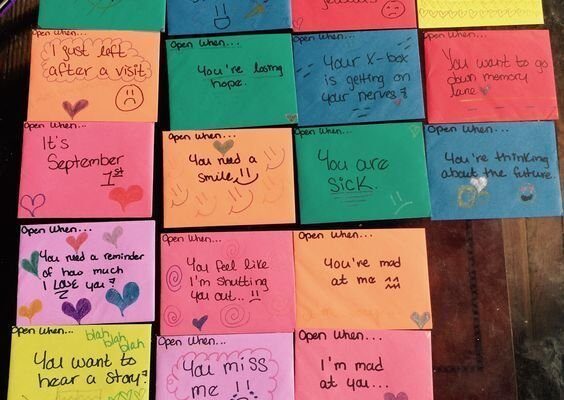 Open When...
I just left
after a visit
Open When...
You're losing
hope.
Open When...
Your X-box
is getting on
your nerves?
Open When...
You want to go
down memory
lane
Open When...
It's
September
1st
Open When...
You need a
smile!!
Open When...
You are
SICK.
Open When...
You're thinking
about the future.
Open When...
You need a reminder
of how much
I LOVE you?
Open When...
You feel like
I'm shutting
you out...
Open When...
You've mad
at me
Open When...
blah
blah
blah
You want to
hear a story?
Open When...
You miss
me !!
Open When...
I'm mad
at you...